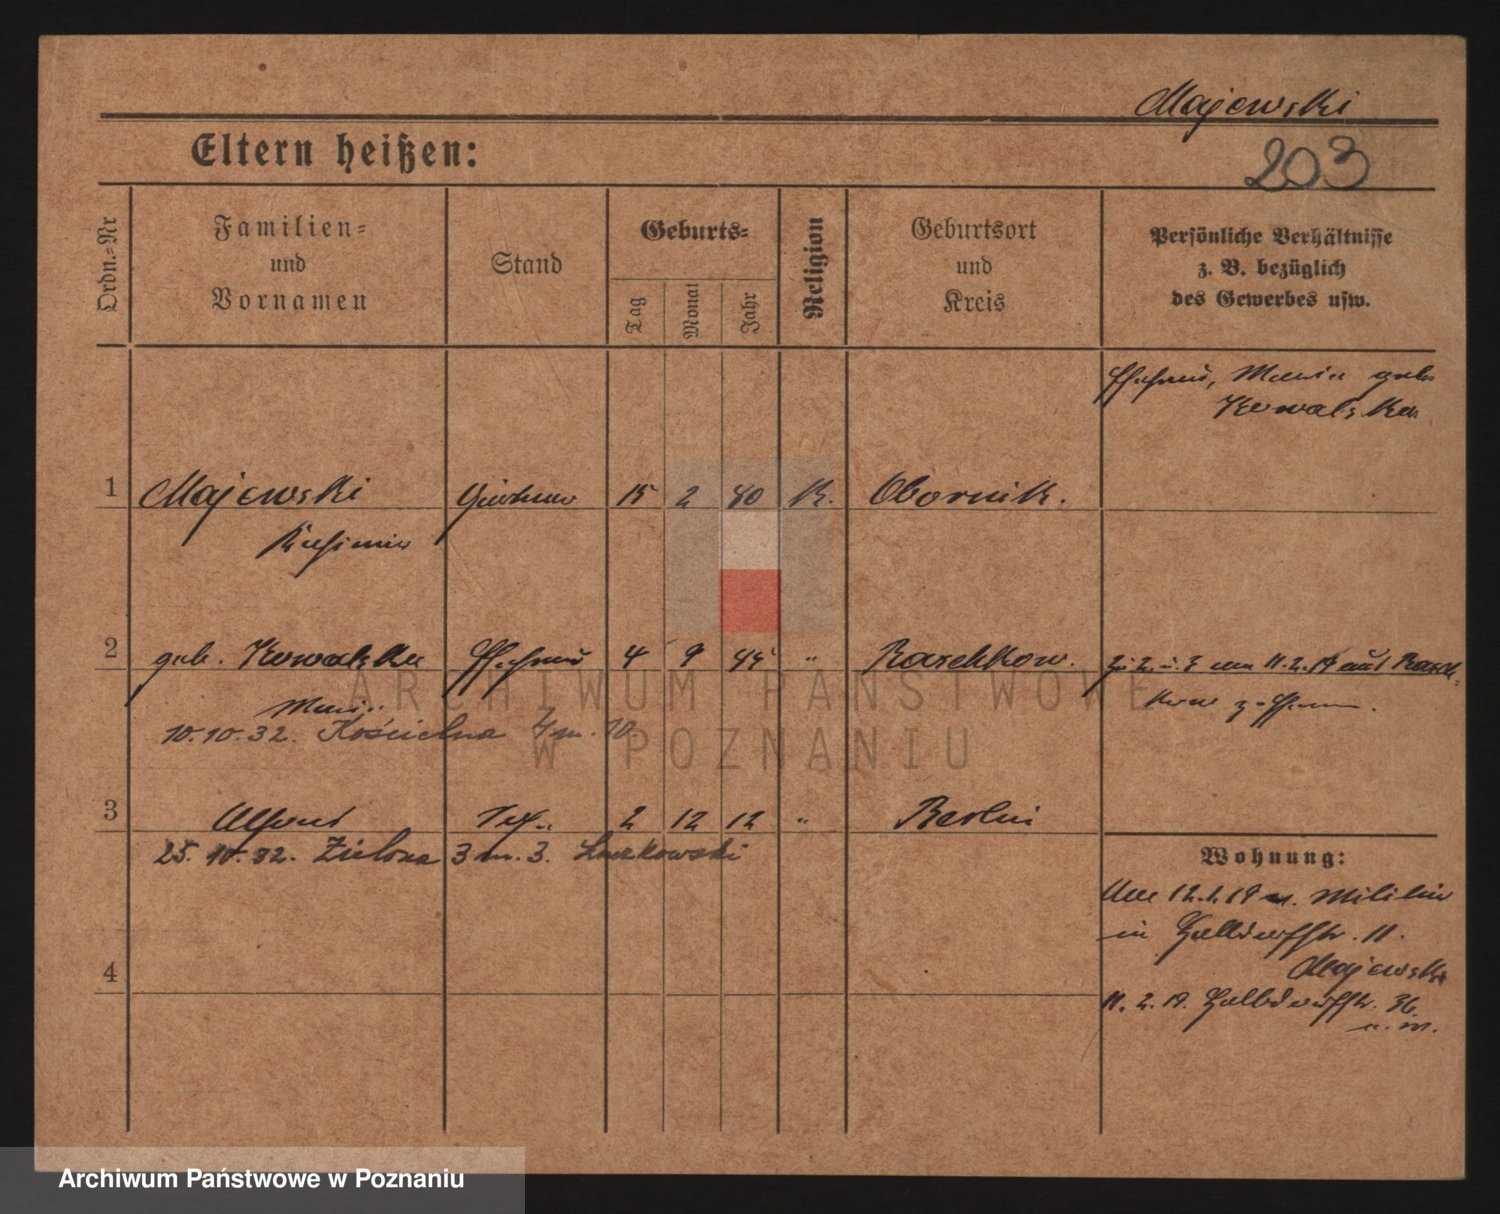 Majewski
203
Eltern heißen:
Ordn.=Nr
Familien=
und
Vornamen
Stand
Geburts=
Tag
Monat
Jahr
Religion
Geburtsort
und
Kreis
Persönliche Verhältnisse
z. B. bezüglich
des Gewerbes usw.
Ehefrau, Maria geb.
Kowalska
1 Majewski 15 2 80 K. Obornik.
Kasimir
2 geb. Kowalska Ehefrau 4 9 " Raschkow. Zu 2 u. 3 am 11.2.19 aus Rasch=
kow
Maria
10.10.32. Kościelna 4 m. 10
3 Alfons 2 12 12 " Berlin
25. 10. 32. Zielona 3 m. 3.
Wohnung:
Am 12.1.19 v. Militär
in 11.
Majewski
11. 2. 19. 36
4
ARCHIWUM PAŃSTWOWE
W POZNANIU
Archiwum Państwowe w Poznaniu